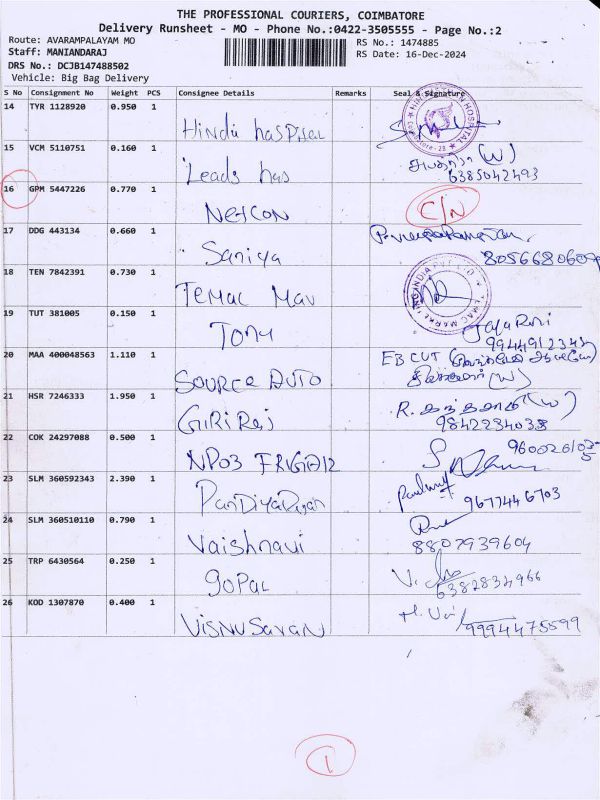 THE PROFESSIONAL COURIERS, COIMBATORE
Delivery Runsheet - MO - Phone No.:0422-3505555 - Page No.:2
Route: AVARAMPALAYAM MO
RS No.: 1474885
Staff: MANIANDARAJ
RS Date: 16-Dec-2024
DRS No.: DCJB147488502
Vehicle: Big Bag Delivery
S No Consignment No Weight PCS Consignee Details Remarks Seal & Signature
14 TYR 1128920 0.950 1
Hindu hospital
15 VCM 5110751 0.160 1
Leads has (W)
6385042493
16 GPM 5447226 0.770 1
Netcon C/N
17 DDG 443134 0.660 1
Saniya
18 TEN 7842391 0.730 1
Temac Mav
19 TUT 381005 0.150 1
Tony
20 MAA 400048563 1.110 1 EB CUT
SOURCE AUTO (W)
21 HSR 7246333 1.950 1
GiRi Raj R. (W)
9842234038
22 COK 24297088 0.500 1
NP03
23 SLM 360592343 2.390 1
9677446703
24 SLM 360510110 0.790 1
Vaishnavi 8807939604
25 TRP 6430564 0.250 1
goPaL 6382834966
26 KOD 1307870 0.400 1
VISNUSaVaN 9994475599
1